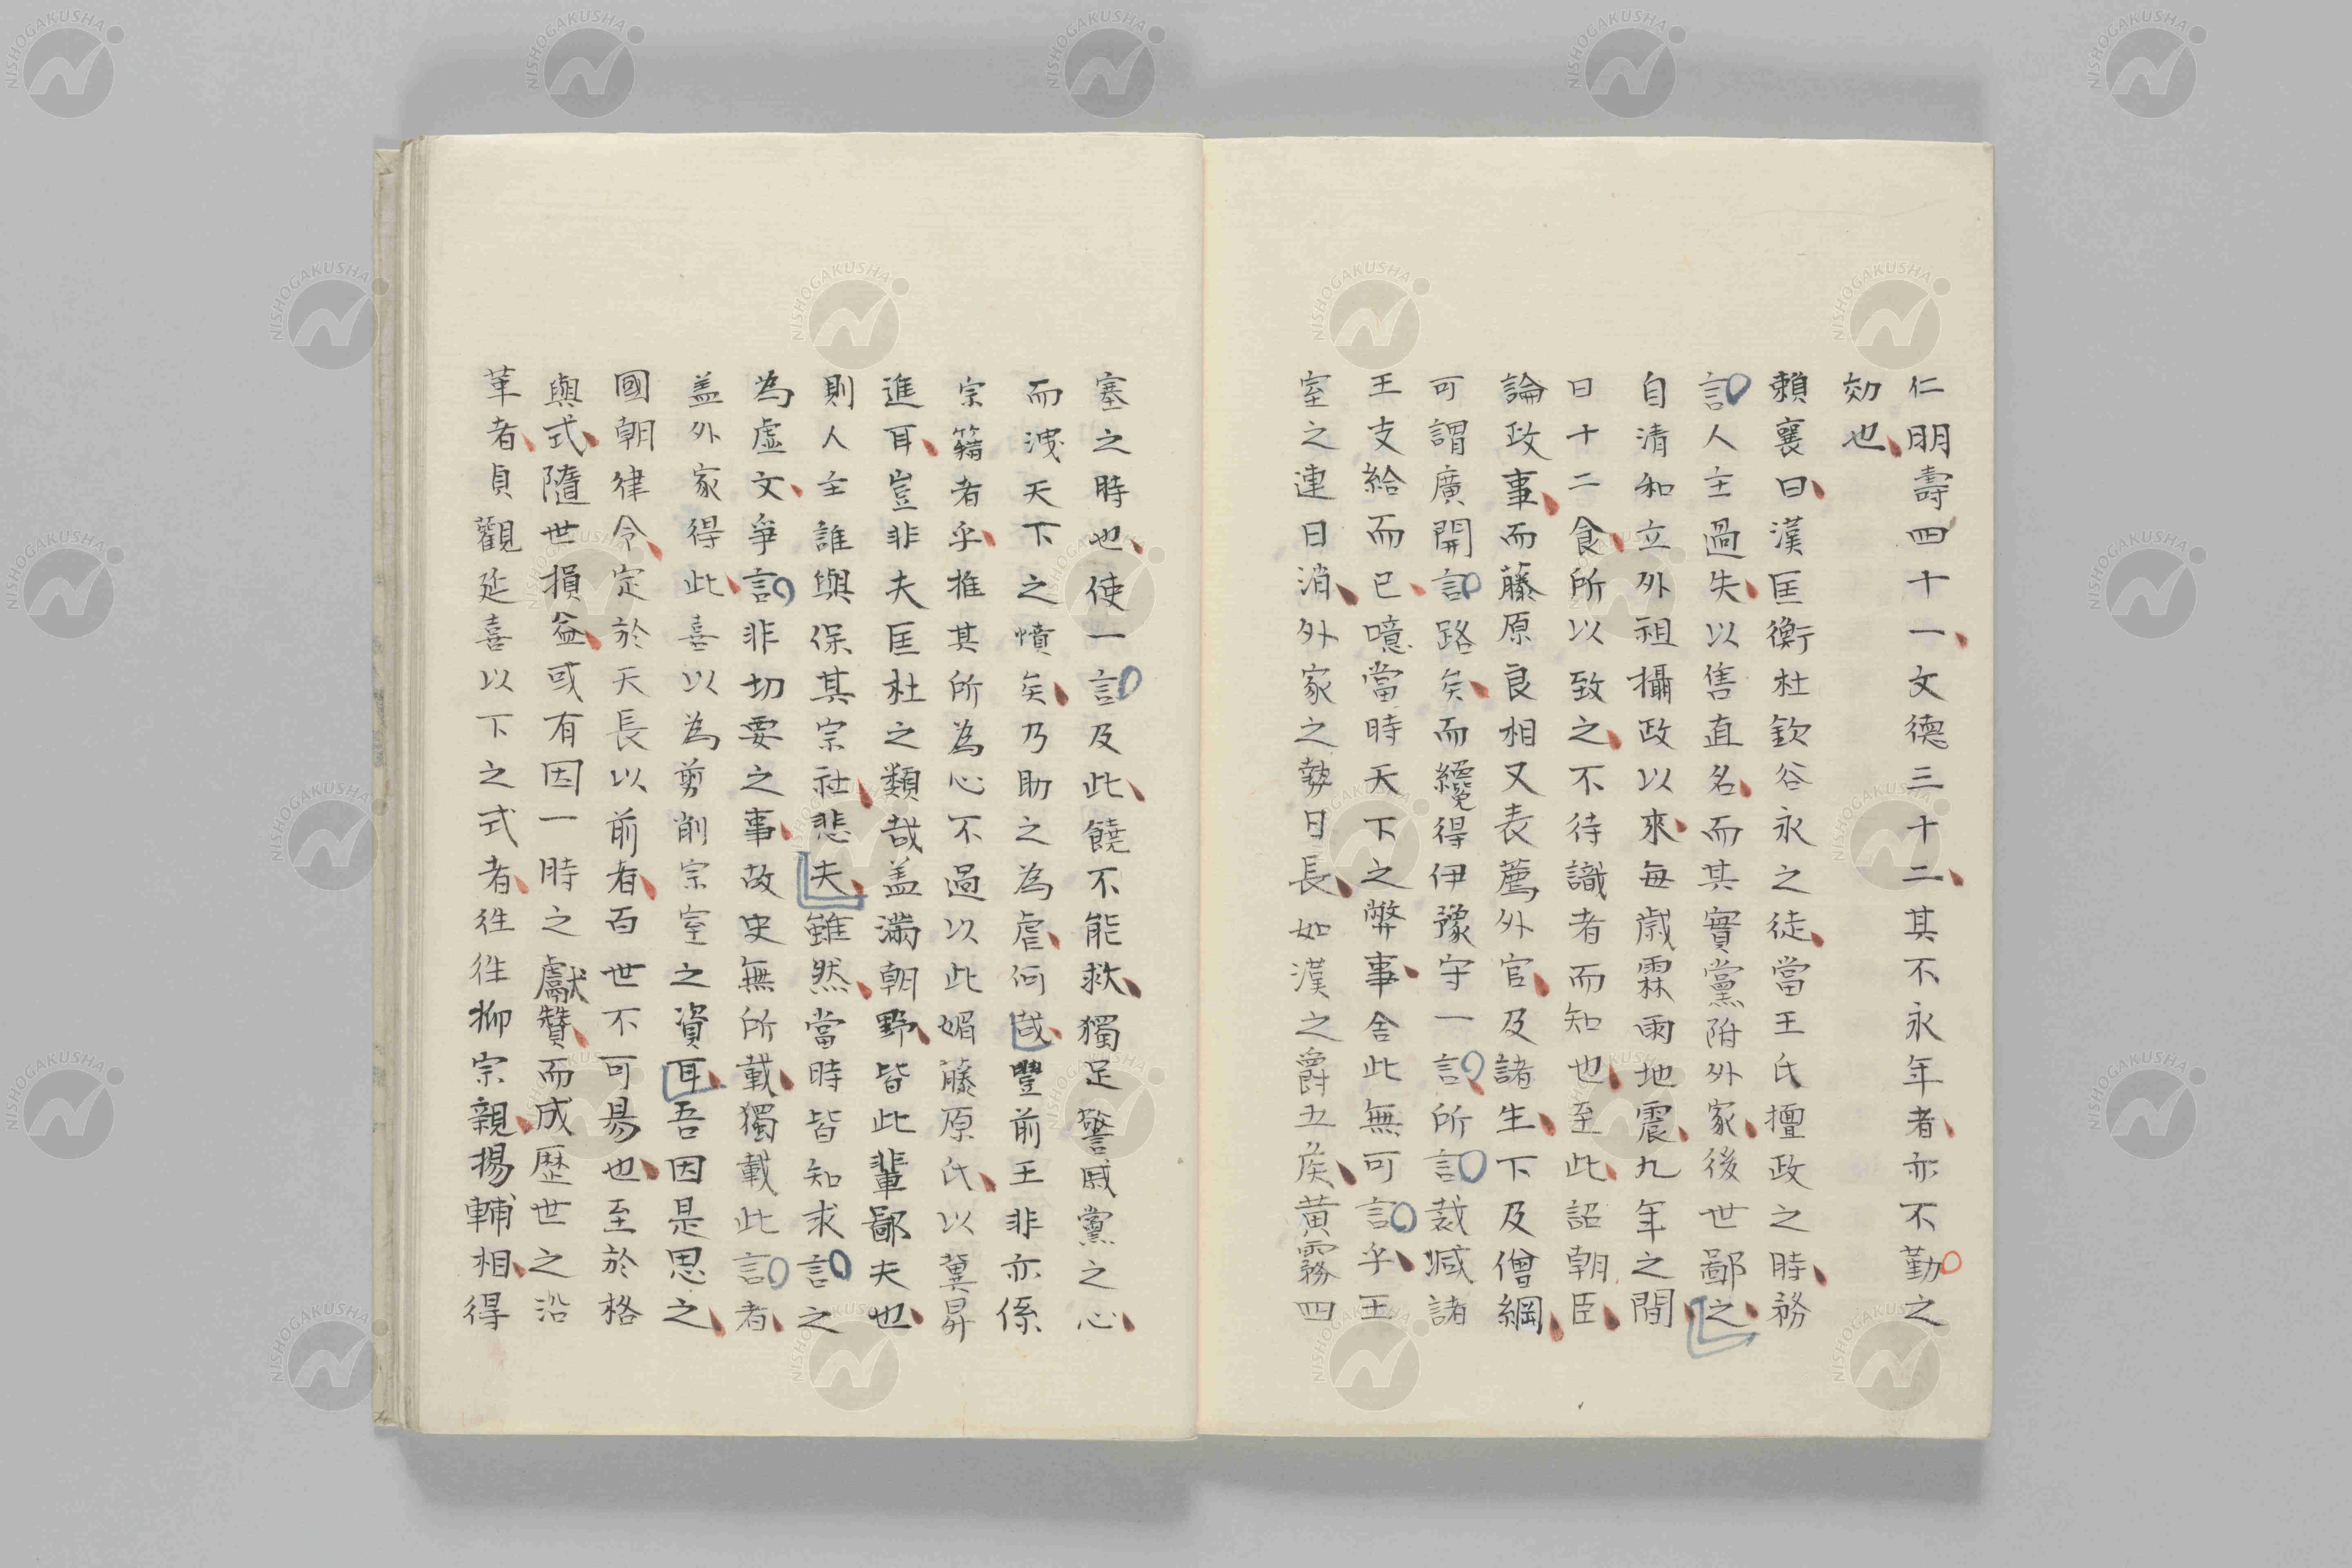 仁明壽四十一文德三十二其不永年者亦不勤之
効也
賴襄曰漢匡衡杜欽谷永之徒當王氏擅政之時務
言人主過失以售直名而其實黨附外家後世鄙之
自清和立外祖攝政以來每歲霖雨地震九年之間
日十二食所以致之不待識者而知也至此詔朝臣
論政事而藤原良相又表薦外官及諸生下及僧綱
可謂廣開言路矣而纔得伊豫守一言所言裁減諸
王支給而已噫當時天下之弊事舍此無可言乎王
室之連日消外家之勢日長如漢之爵五侯黃霧四
塞之時也使一言及此饒不能救獨足警戚黨之心
而洩天下之憤矣乃助之為虐何哉豐前王非亦係
宗籍者乎推其所為心不過以此媚藤原氏以冀昇
進耳豈非夫匡杜之類哉盖滿朝野皆此輩鄙夫也
則人主誰與保其宗社悲夫雖然當時皆知求言之
為虛文爭言非切要之事故史無所載獨載此言者
盖外家得此喜以為剪削宗室之資耳吾因是思之
國朝律令定於天長以前者百世不可易也至於格
與式隨世損益或有因一時之獻贊而成歷世之沿
革者貞觀延喜以下之式者往往抑宗親揚輔相得
NISHOGAKUSHA